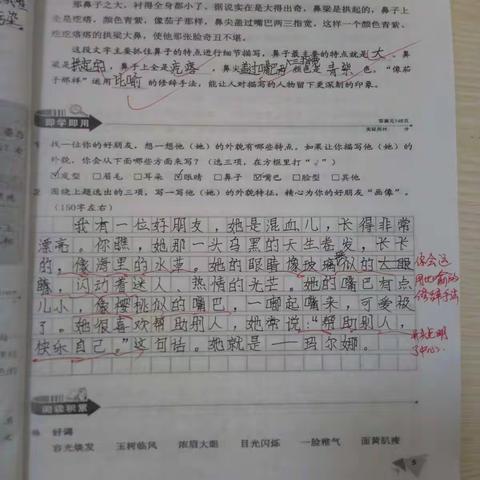 那鼻子之大，衬得全身都小了。据说实在是大得出奇，鼻梁是拱起的，鼻子上全是疙瘩，颜色青紫，像茄子那样，鼻尖盖过嘴巴两三指宽，这样一个颜色青紫、疙疙瘩瘩的拱梁大鼻，使他那张脸奇丑不堪。
这段文字主要抓住鼻子的特点进行细节描写，鼻子最主要的特点就是大，鼻
梁是拱起的，鼻子上全是疙瘩，鼻尖盖过嘴巴两三指宽，颜色是青紫色。“像茄
子那样”运用比喻的修辞手法，能让人对描写的人物留下更深刻的印象。
即学即用
找一位你的好朋友，想一想他（她）的外貌有哪些特点，如果让你描写他（她）的
外貌，你会从下面哪些方面来写？（选三项，在方框里打“√”）
☑发型 □眉毛 □耳朵 ☑眼睛 □鼻子 ☑嘴巴 □脸型 □其他
围绕上题选出的三项，写一写他（她）的外貌特征，精心为你的好朋友“画像”。
（150字左右）
我有一位好朋友，她是混血儿，长得非常
漂亮。你瞧，她那一头乌黑的天生卷发，长长
的，像海里的水草。她的眼睛像玻璃似的大眼
睛，闪动着迷人、热情的光芒。她的嘴巴有点
儿小，像樱桃似的嘴巴，一嘟起嘴来，可爱极
了。她很喜欢帮助别人，她常说：“帮助别人，
快乐自己。”这句话。她就是——玛尔娜。
你会运
用比喻的
修辞手法
阅读积累
好词
容光焕发 玉树临风 浓眉大眼 目光闪烁 一脸稚气 面黄肌瘦
5